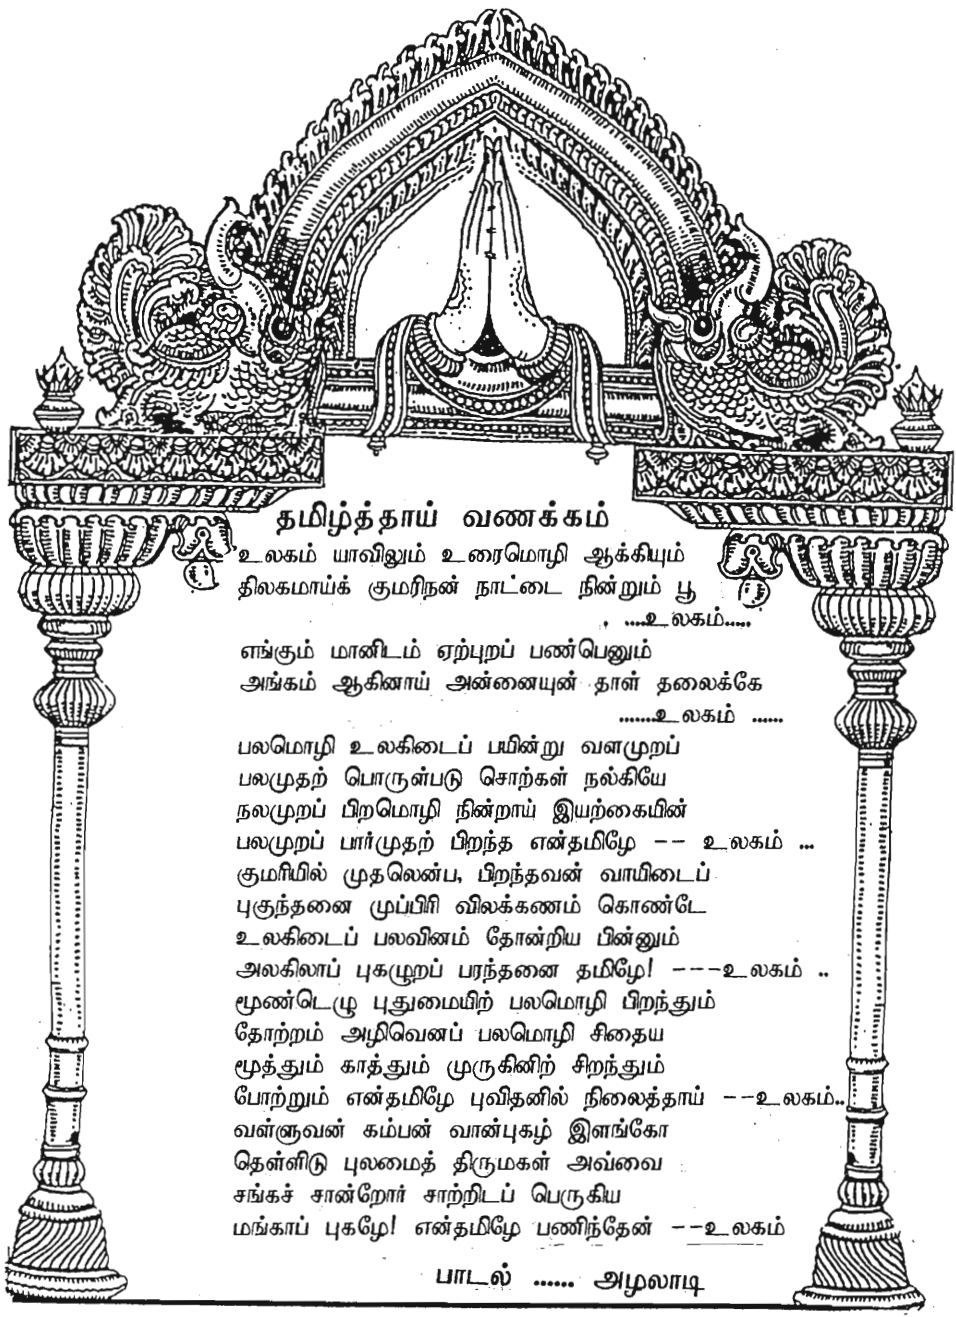 தமிழ்த்தாய் வணக்கம்
உலகம் யாவிலும் உரைமொழி ஆக்கியும்
திலகமாய்க் குமரிநன் நாட்டை நின்றும் பூ
....உலகம்.....
எங்கும் மானிடம் ஏற்புறப் பண்பெனும்
அங்கம் ஆகினாய் அன்னையுன் தாள் தலைக்கே
.......உலகம் ......
பலமொழி உலகிடைப் பயின்று வளமுறப்
பலமுதற் பொருள்படு சொற்கள் நல்கியே
நலமுறப் பிறமொழி நின்றாய் இயற்கையின்
பலமுறப் பார்முதற் பிறந்த என்தமிழே -- உலகம் ...
குமரியில் முதலென்ப, பிறந்தவன் வாயிடைப்
புகுந்தனை முப்பிரி விலக்கணம் கொண்டே
உலகிடைப் பலவினம் தோன்றிய பின்னும்
அலகிலாப் புகழுறப் பரந்தனை தமிழே! ---உலகம் ..
மூண்டெழு புதுமையிற் பலமொழி பிறந்தும்
தோற்றம் அழிவெனப் பலமொழி சிதைய
மூத்தும் காத்தும் முருகினிற் சிறந்தும்
போற்றும் என்தமிழே புவிதனில் நிலைத்தாய் --உலகம்..
வள்ளுவன் கம்பன் வான்புகழ் இளங்கோ
தெள்ளிடு புலமைத் திருமகள் அவ்வை
சங்கச் சான்றோர் சாற்றிடப் பெருகிய
மங்காப் புகழே! என்தமிழே பணிந்தேன் --உலகம்
பாடல் ...... அழலாடி